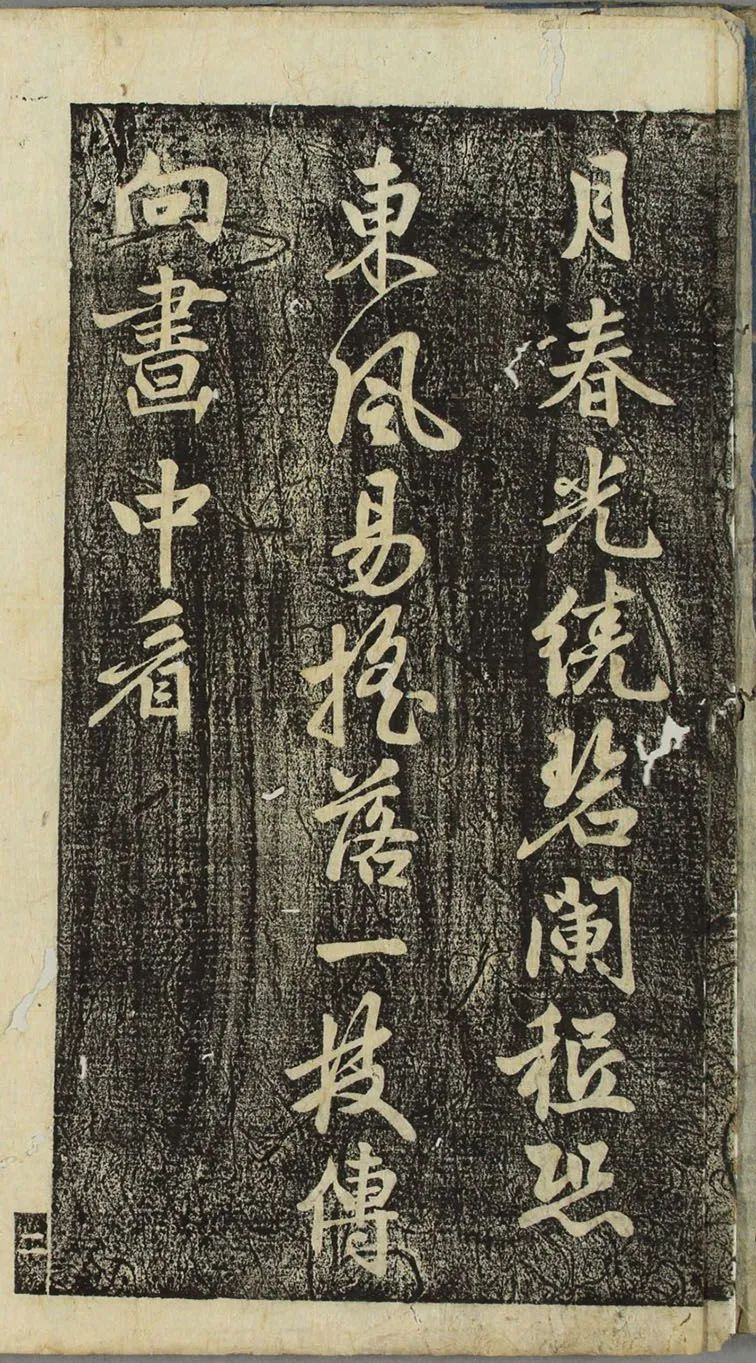 月春光繞碧闌秪恐
東風易搖落一枝傳
向畫中看
二